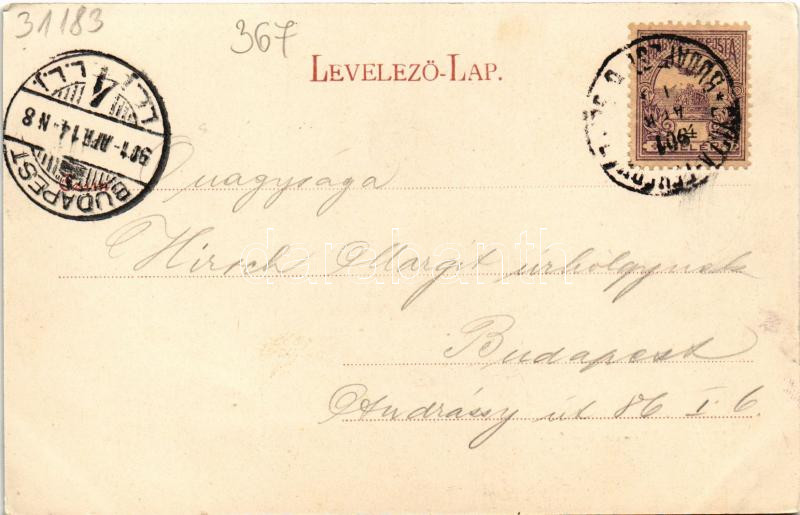 31183
367
LEVELEZŐ-LAP.
BUDAPEST
901 APR 14 N 8
4
Őnagysága
Hirsch Margit úrhölgynek
Budapest
Andrássy út 86 I. 6.
darabanth